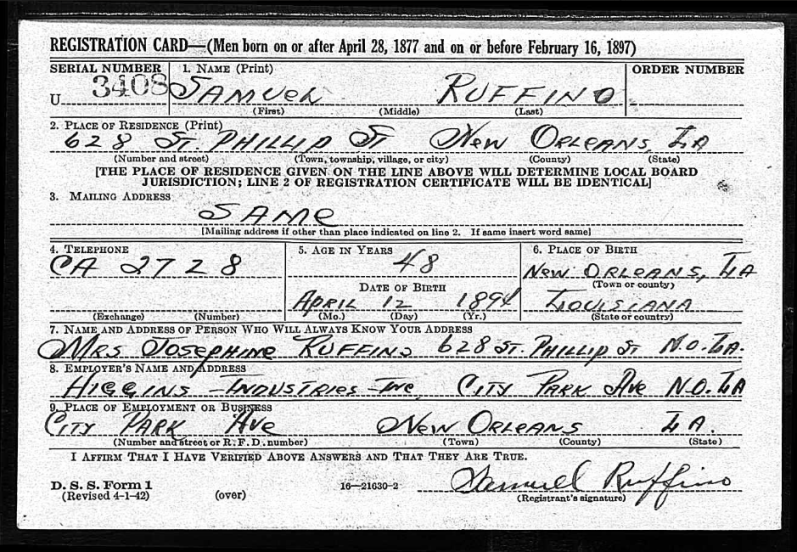 REGISTRATION CARD—(Men born on or after April 28, 1877 and on or before February 16, 1897)
SERIAL NUMBER 1. NAME (Print) ORDER NUMBER
U 3408 SAMUEL RUFFINO
(First) (Middle) (Last)
2. PLACE OF RESIDENCE (Print)
628 ST. PHILLIP ST NEW ORLEANS LA
(Number and street) (Town, township, village, or city) (County) (State)
[THE PLACE OF RESIDENCE GIVEN ON THE LINE ABOVE WILL DETERMINE LOCAL BOARD
JURISDICTION; LINE 2 OF REGISTRATION CERTIFICATE WILL BE IDENTICAL]
3. MAILING ADDRESS
SAME
[Mailing address if other than place indicated on line 2. If same insert word same]
4. TELEPHONE 5. AGE IN YEARS 6. PLACE OF BIRTH
CA 2728 48 NEW ORLEANS, LA
DATE OF BIRTH (Town or county)
APRIL 12 1894 LOUISIANA
(Exchange) (Number) (Mo.) (Day) (Yr.) (State or country)
7. NAME AND ADDRESS OF PERSON WHO WILL ALWAYS KNOW YOUR ADDRESS
MRS JOSEPHINE RUFFINO 628 ST. PHILLIP ST N.O. LA.
8. EMPLOYER'S NAME AND ADDRESS
HIGGINS-INDUSTRIES-INC, CITY PARK AVE N.O. LA
9. PLACE OF EMPLOYMENT OR BUSINESS
CITY PARK AVE NEW ORLEANS LA.
(Number and street or R. F. D. number) (Town) (County) (State)
I AFFIRM THAT I HAVE VERIFIED ABOVE ANSWERS AND THAT THEY ARE TRUE.
D. S. S. Form 1 Samuel Ruffino
(Revised 4-1-42) (over) 16—21630-2 (Registrant's signature)